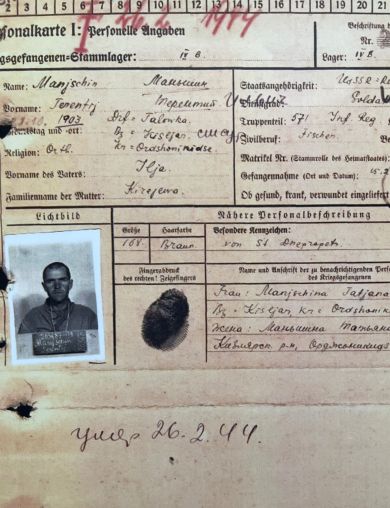 2 3 4 5 6 7 8 9 10 11 12 13 14 15 16 17 18 19 20 21
† 26.2 1944
Personelle Angaben
Beschriftung
gsgefangenen-Stammlager: IV B.
Lager: IV B.
Name: Manjschin Маньшин
Staatsangehörigkeit: UdSSR
Vorname: Terentij Терентий
Dienstgrad: Soldat
1903 Drf = Talowka
Truppenteil: 571 Inf. Reg
Bz = Krsljan.
Zivilberuf: Fischer.
Religion: Orth. Kr = Ordshonikidse.
Matrikel Nr. (Stammrolle des Heimatstaates)
Vorname des Vaters: Ilja.
Gefangennahme (Ort und Datum): 15.2
Familienname der Mutter:
Ob gesund, krank, verwundet eingeliefert
Lichtbild
Nähere Personalbeschreibung
Größe Haarfarbe Besondere Kennzeichen:
168. Braun. von St. Dnepropet.
Fingerabdruck des rechten! Zeigefingers
Name und Anschrift der zu benachrichtigenden
des Kriegsgefangenen
Frau: Manjschina Tatjana
Bz = Krsljan, Kr = Ordshonikid
Жена: Маньшина Татьяна
р-н, Орджоникид
умер 26.2.44.